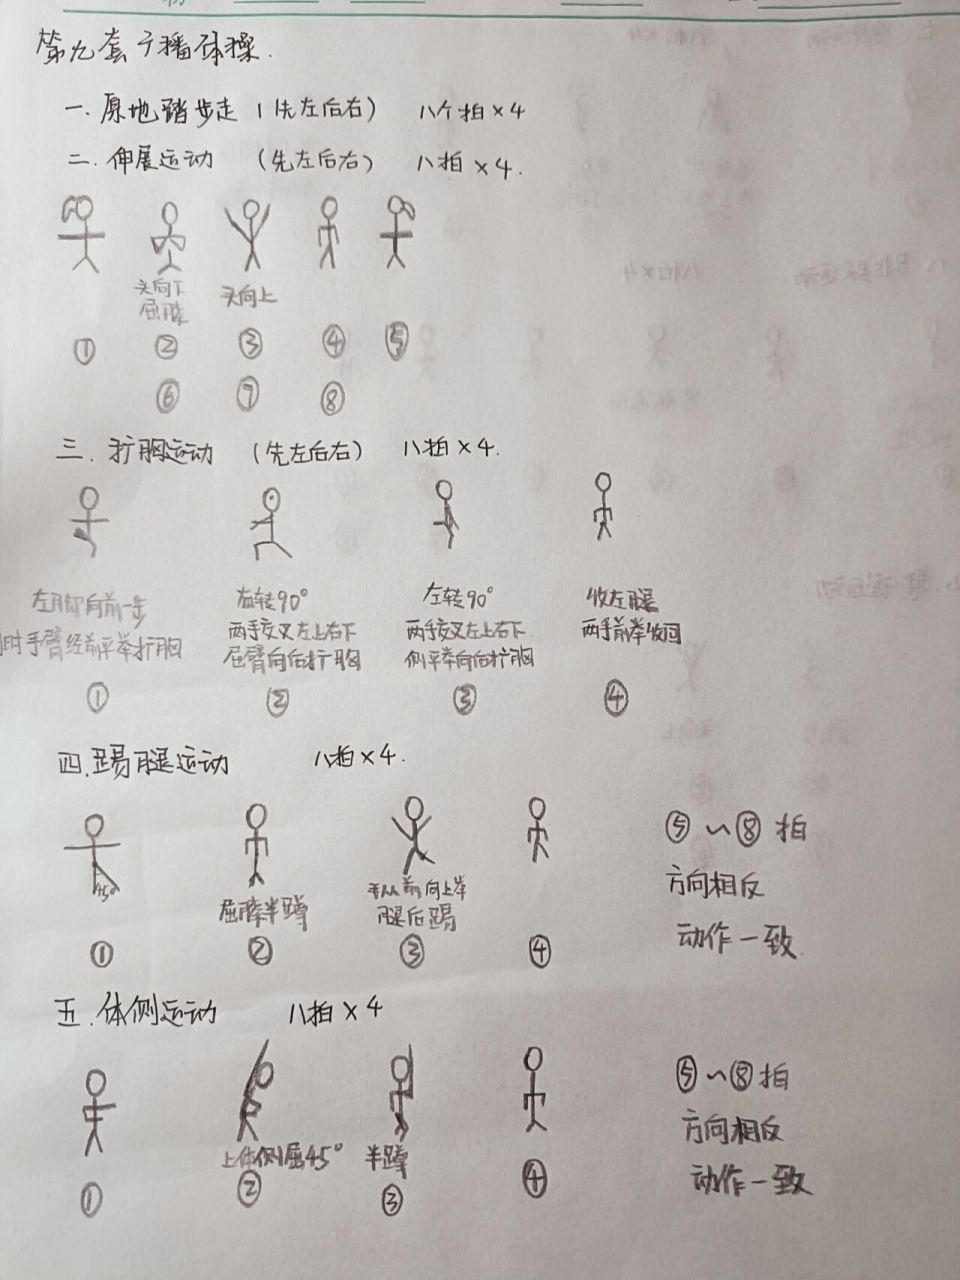 第九套广播体操.
一.原地踏步走(先左后右) 八个拍×4
二.伸展运动 (先左后右) 八拍×4.
头向下 头向上
屈膝
① ② ③ ④ ⑤
⑥ ⑦ ⑧
三.扩胸运动 (先左后右) 八拍×4.
左脚向前一步 左转90° 左转90° 收左腿
同时手臂经前平举扩胸 两手交叉左上右下 两手交叉左上右下 两手前举收回
屈臂向后扩胸 侧平举向后扩胸
① ② ③ ④
四.踢腿运动 八拍×4.
⑤~⑧拍
45°
方向相反
手从前向上举
屈膝半蹲 腿后踢
① ② ③ ④ 动作一致.
五.体侧运动 八拍×4
⑤~⑧拍
方向相反
上体侧屈45° 半蹲
① ② ③ ④ 动作一致